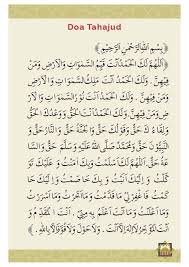 Doa Tahajud
﴿ بِسْمِ اللهِ الرَّحْمٰنِ الرَّحِيْمِ ﴾
﴿ اَللّٰهُمَّ لَكَ الْحَمْدُ اَنْتَ قَيِّمُ السَّمَوَاتِ وَالْاَرْضِ وَمَنْ
فِيْهِنَّ . وَلَكَ الْحَمْدُ اَنْتَ مَلِكُ السَّمَوَاتِ وَالْاَرْضِ وَمَنْ
فِيْهِنَّ . وَلَكَ الْحَمْدُ اَنْتَ نُوْرُ السَّمَوَاتِ وَالْاَرْضِ
وَمَنْ فِيْهِنَّ . وَلَكَ الْحَمْدُ اَنْتَ الْحَقُّ وَوَعْدُكَ الْحَقُّ
وَلِقَاؤُكَ حَقٌّ وَقَوْلُكَ حَقٌّ وَالْجَنَّةُ حَقٌّ وَالنَّارُ حَقٌّ وَ
النَّبِيُّوْنَ حَقٌّ وَمُحَمَّدٌ صَلَّى اللهُ عَلَيْهِ وَسَلَّمَ حَقٌّ وَالسَّاعَةُ
حَقٌّ . اَللّٰهُمَّ لَكَ اَسْلَمْتُ وَبِكَ اٰمَنْتُ وَعَلَيْكَ تَوَ
كَّلْتُ وَاِلَيْكَ اَنَبْتُ وَبِكَ خَاصَمْتُ وَاِلَيْكَ حَا
كَمْتُ فَاغْفِرْلِيْ مَا قَدَّمْتُ وَمَا اَخَّرْتُ وَمَا اَسْرَرْتُ
وَمَا اَعْلَنْتُ وَمَا اَنْتَ اَعْلَمُ بِهِ مِنِّيْ . اَنْتَ الْمُقَدِّمُ وَ
اَنْتَ الْمُؤَخِّرُ لَااِلٰهَ اِلَّا اَنْتَ . وَلَا حَوْلَ وَلَا قُوَّةَ اِلَّا بِاللهِ . ﴾